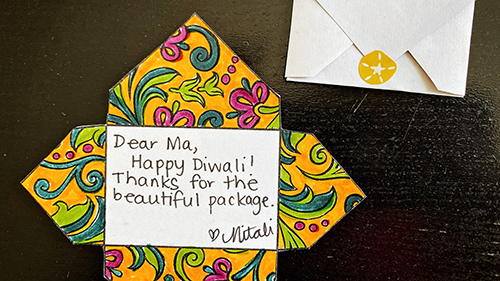 Dear Ma,
Happy Diwali!
Thanks for the
beautiful package.
♡ Mitali